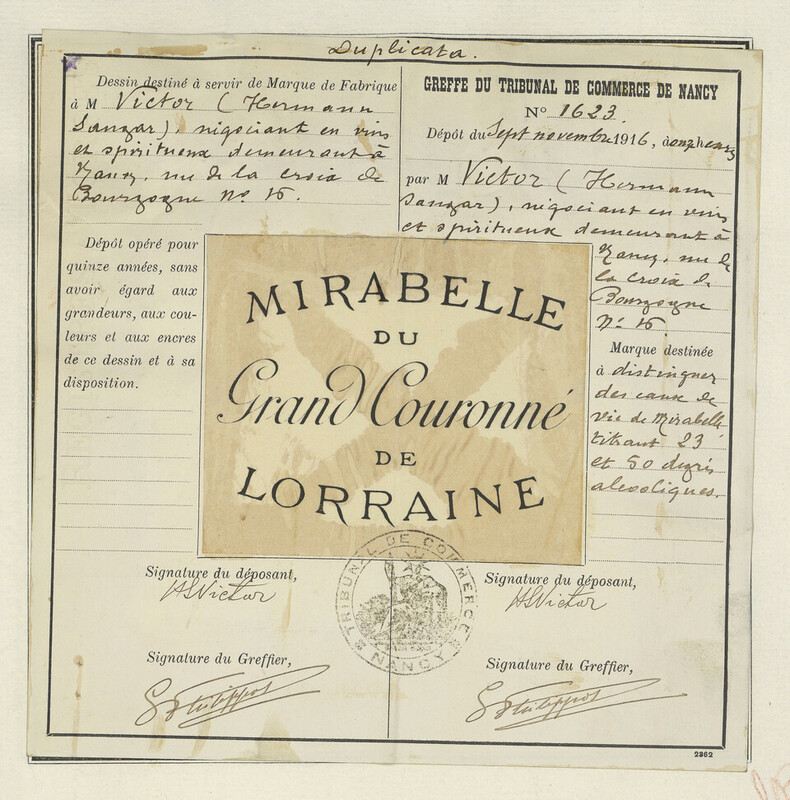 Duplicata.
Dessin destiné à servir de Marque de Fabrique
à M Victor (Hermann
Sanzar), négociant en vins
et spiritueux demeurant à
Nancy, rue de la croix de
Bourgogne No 16.
Dépôt opéré pour
quinze années, sans
avoir égard aux
grandeurs, aux cou-
leurs et aux encres
de ce dessin et à sa
disposition.
GREFFE DU TRIBUNAL DE COMMERCE DE NANCY
No 1623.
Dépôt du Sept novembre 1916, à onze heures
par M Victor (Hermann
Sanzar), négociant en vins
et spiritueux demeurant à
Nancy, rue de
la croix de
Bourgogne
No 16.
Marque destinée
à distinguer
des eaux de
vie de Mirabelle
titrant 23
et 50 degrés
alcooliques.
MIRABELLE
DU
Grand Couronné
DE
LORRAINE
Signature du déposant,
HSVictor
Signature du déposant,
HSVictor
TRIBUNAL DE COMMERCE
NANCY
Signature du Greffier,
Signature du Greffier,
2362